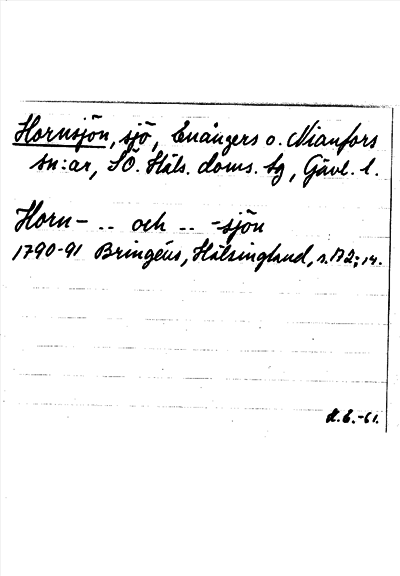 Hornsjön, sjö, Enångers o. Nianfors
sn:ar, SÖ. Häls. doms. sg, Gävl. l.
Horn- .. och .. -sjön
1790-91 Bringéus, Hälsingland, s. 172; 14.
-61.